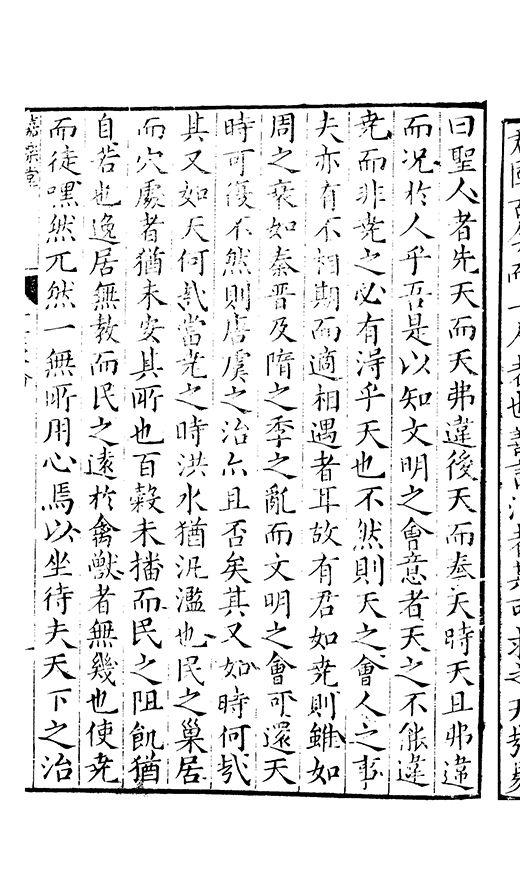 君國
而一
者也善言
者其
求之天哉易
曰聖人者先天而天弗違後天而奉天時天且弗違
而況於人乎吾是以知文明之會意者天之不能違
堯而非堯之必有得乎天也不然則天之會人之事
夫亦有不相期而適相遇者耳故有君如堯則雖如
周之衰如秦晉及隋之季之亂而文明之會可還天
時可復不然則唐虞之治亦且否矣其又如時何哉
其又如天何哉當堯之時洪水猶汎濫也民之巢居
而穴處者猶未安其所也百穀未播而民之阻飢猶
自若也逸居無教而民之遠於禽獸者無幾也使堯
而徒嘿然兀然一無所用心焉以坐待夫天下之治
嘉樂堂